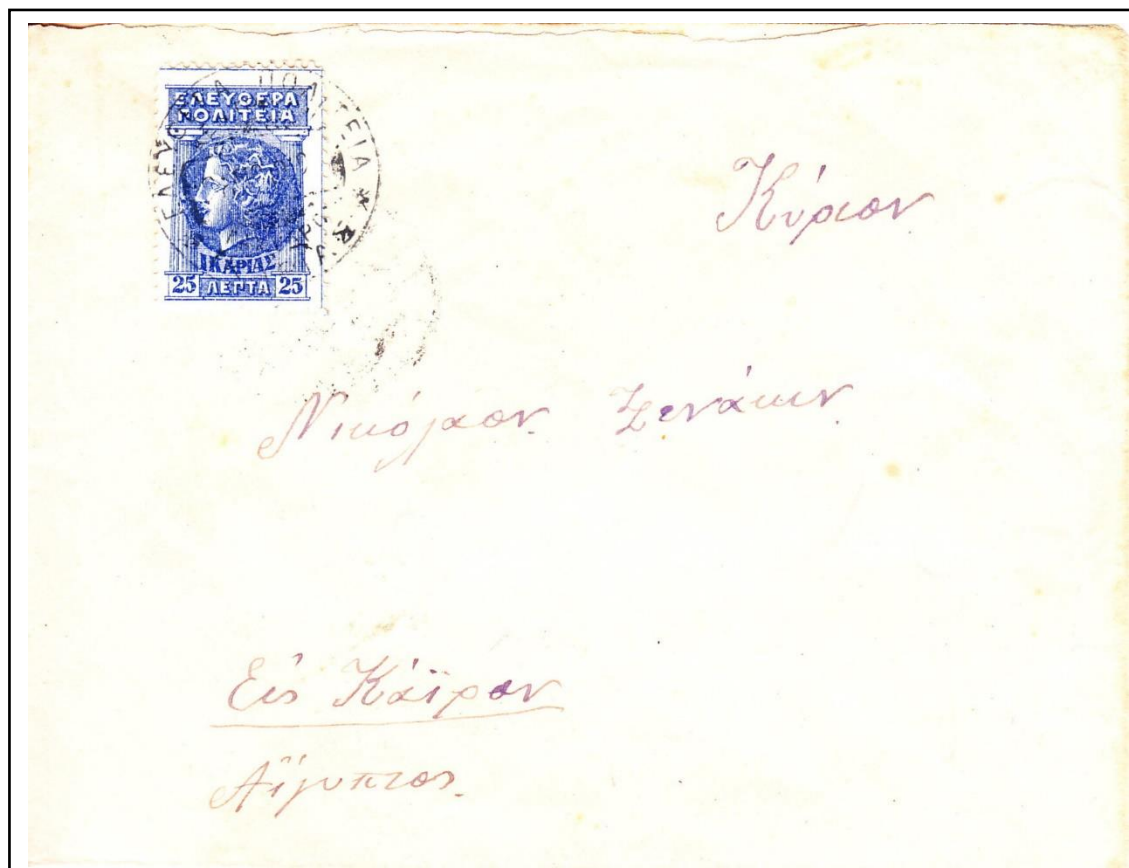 ΕΛΕΥΘΕΡΑ
ΠΟΛΙΤΕΙΑ
ΙΚΑΡΙΑΣ
25 ΛΕΠΤΑ 25
ΕΛΕΥΘΕΡΑ ΠΟΛΙΤΕΙΑ
Κύριον
Νικόλαον Ξενάκην
Εἰς Κάϊρον
Αἴγυπτος.